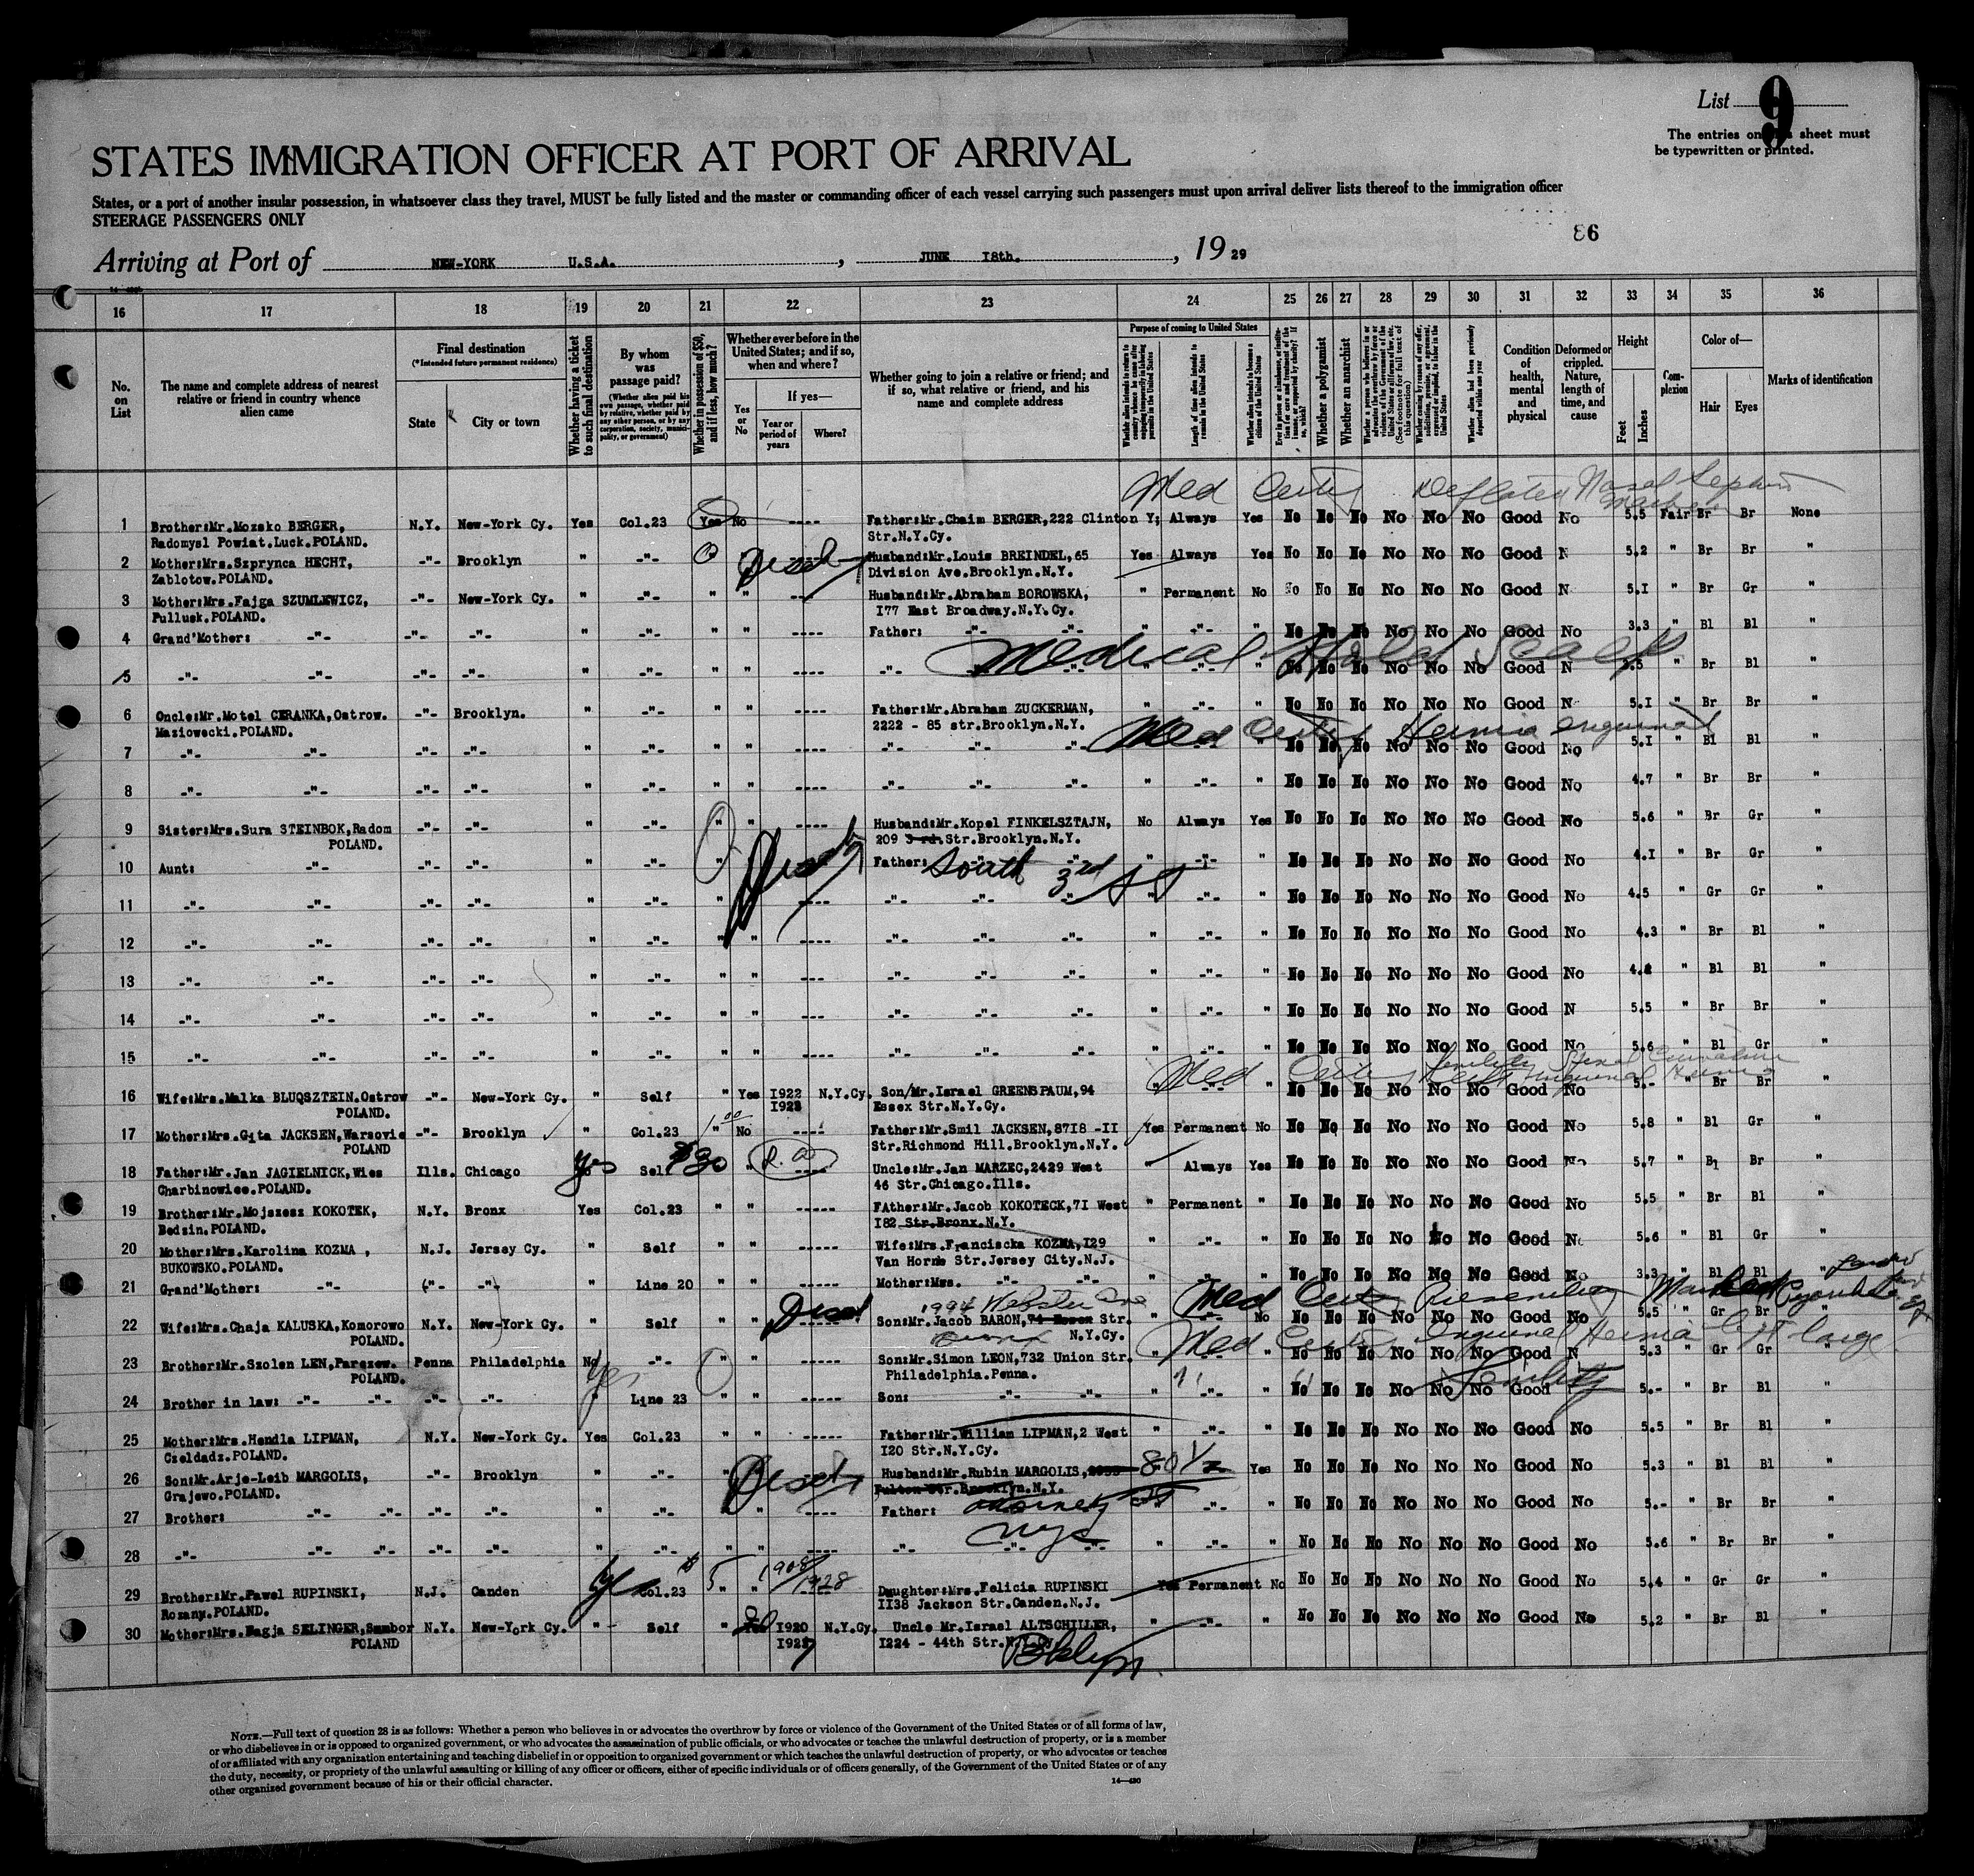 List 9
The entries on this sheet must
be typewritten or printed.
STATES IMMIGRATION OFFICER AT PORT OF ARRIVAL
States, or a port of another insular possession, in whatsoever class they travel, MUST be fully listed and the master or commanding officer of each vessel carrying such passengers must upon arrival deliver lists thereof to the immigration officer
STEERAGE PASSENGERS ONLY
86
Arriving at Port of NEW-YORK U.S.A. , JUNE I8th. , 19 29
16 17 18 19 20 21 22 23 24 25 26 27 28 29 30 31 32 33 34 35 36
No. on List
The name and complete address of nearest relative or friend in country whence alien came
Final destination
(*Intended future permanent residence)
State
City or town
Whether having a ticket to such final destination
By whom was passage paid?
(Whether alien paid his own passage, whether paid by relative, whether paid by any other person, or by any corporation, society, municipality, or government)
Whether in possession of $50, and if less, how much?
Whether ever before in the United States; and if so, when and where?
Yes or No
If yes—
Year or period of years
Where?
Whether going to join a relative or friend; and if so, what relative or friend, and his name and complete address
Purpose of coming to United States
Length of time alien intends to remain in the United States
Whether alien intends to become a citizen of the United States
Whether a polygamist
Whether an anarchist
Condition of health, mental and physical
Deformed or crippled. Nature, length of time, and cause
Height
Feet
Inches
Complexion
Color of—
Hair
Eyes
Marks of identification
Med Certif Nasal
1 Brother:Mr.Mozsko BERGER, N.Y. New-York Cy. Yes Col.23 Yes No ---- Father:Mr.Chaim BERGER,222 Clinton Y; Always Yes No No No No No No Good No 5.5 Fair Br Br None
Radomysl Powiat.Luck.POLAND. Str.N.Y.Cy.
2 Mother:Mrs.Szprynca HECHT, -"- Brooklyn " -"- Disch Husband:Mr.Louis BREINDEL,65 Yes Always Yes No No No No No No Good N 5.2 " Br Br "
Zablotow.POLAND. Division Ave.Brooklyn.N.Y.
3 Mother:Mrs.Fajga SZUMLEWICZ, -"- New-York Cy. " -"- " " ---- Husband:Mr.Abraham BOROWSKA, " Permanent No No No No No No No Good N 5.I " Br Gr "
Pullusk.POLAND. I77 East Broadway.N.Y.Cy.
4 Grand'Mother: -"- -"- -"- " -"- " " ---- Father: -"- -"- " -"- " No No No No No No Good No 3.3 " Bl Bl "
Medical Hold Scalp
5 -"- -"- -"- -"- " -"- " " ---- -"- -"- -"- " -"- " No No No No No No Good N " Br Bl "
6 Oncle:Mr.Motel CERANKA,Ostrow. -"- Brooklyn. " -"- " " ---- Father:Mr.Abraham ZUCKERMAN, " -"- " No No No No No No Good N 5.I " Br Br "
Maziowecki.POLAND. 2222 - 85 str.Brooklyn.N.Y.
Med Certif Hernia inguinal
7 -"- -"- -"- -"- " -"- " " ---- -"- -"- -"- No No No No No No Good No 5.I " Bl Bl "
8 -"- -"- -"- -"- " -"- " " ---- -"- -"- -"- " -"- " No No No No No No Good No 4.7 " Br Br "
9 Sister:Mrs.Sura STEINBOK,Radom -"- -"- " -"- " " ---- Husband:Mr.Kopel FINKELSZTAJN, No Always Yes No No No No No No Good No 5.6 " Br Gr "
POLAND. 209 3 rd.Str.Brooklyn.N.Y.
10 Aunt: -"- -"- -"- " -"- " Disch Father: South 3rd St " -"- " No No No No No No Good No 4.I " Br Gr "
11 -"- -"- -"- -"- " -"- " ---- -"- -"- -"- " -"- " No No No No No No Good No 4.5 " Gr Gr "
12 -"- -"- -"- -"- " -"- " " ---- -"- -"- -"- " -"- " No No No No No No Good No 4.3 " Br Bl "
13 -"- -"- -"- -"- " -"- " " ---- -"- -"- -"- " -"- " No No No No No No Good No " Bl Bl "
14 -"- -"- -"- -"- " -"- " " ---- -"- -"- -"- " -"- " No No No No No No Good N 5.5 " Br Br "
15 -"- -"- -"- -"- " -"- " " ---- -"- -"- -"- " -"- " No No No No No No Good No 5.6 " Bl Gr "
Med Certif Senility Spinal Curvature
Inguinal Hernia
16 Wife:Mrs.Malka BLUQSZTEIN.Ostrow -"- New-York Cy. " Self " Yes I922 N.Y.Cy. Son/Mr.Israel GREENSPAUM,94 " -"- " No No No No No No Good No 5.- " Br Br "
POLAND. Essex Str.N.Y.Cy.
17 Mother:Mrs.Gita JACKSEN,Warsovie -"- Brooklyn " Col.23 1 00 " No ---- Father:Mr.Smil JACKSEN,87I8 -II Yes Permanent No No No No No No No Good No 5.8 " Bl Gr "
POLAND Str.Richmond Hill.Brooklyn.N.Y.
18 Father:Mr.Jan JAGIELNICK,Wies Ills. Chicago yes Self $30 " Uncle:Mr.Jan MARZEC,2429 West " Always Yes No No No No No No Good No 5.7 " Bl Br "
Charbinowice.POLAND. 46 Str.Chicago.Ills.
19 Brother:Mr.Mojszesz KOKOTEK, N.Y. Bronx Yes Col.23 " " ----- FAther:Mr.Jacob KOKOTECK,7I West " Permanent " No No No No No No Good No 5.5 " Br Bl "
Bedzin.POLAND. I82 Str.Bronx.N.Y.
20 Mother:Mrs.Karolina KOZMA , N.J. Jersey Cy. " Self " " ----- Wife:Mrs.Franciscka KOZMA,I29 " -"- " No No No No No No Good No 5.6 " Bl Gr "
BUKOWSKO.POLAND. Van Horne Str.Jersey City.N.J.
21 Grand'Mother: -"- -"- -"- " Line 20 " " ----- Mother:Mrs. -"- -"- " -"- " No No No No No No Good No 3.3 " Bl Bl "
Disch 1994 Webster Ave Med Certif
22 Wife:Mrs.Chaja KALUSKA,Komorowo N.Y. New-York Cy. " Self ----- Son:Mr.Jacob BARON,74 Essex Str. " -"- No No No No No No No Good No 5.5 " Gr Br "
POLAND. Bronx N.Y.Cy.
Med Certif Inguinal Hernia left large
23 Brother:Mr.Szolen LEN,Parczew. Penna Philadelphia No yes -"- " " ----- Son:Mr.Simon LEON,732 Union Str. No No No No No No Good N 5.3 " Gr Gr "
POLAND. Philadelphia.Penna.
Senility
24 Brother in law: -"- -"- -"- -"- " Line 23 " " ----- Son: -"- -"- " -"- " No No No No No No Good 5.- " Br Bl "
25 Mother:Mrs.Hendla LIPMAN, N.Y. New-York Cy. Yes Col.23 " " ----- Father:Mr.William LIPMAN,2 West " -"- " No No No No No No Good No 5.5 " Br Bl "
Czeldadz.POLAND. I20 Str.N.Y.Cy.
26 Son:Mr.Arje-Leib MARGOLIS, -"- Brooklyn " -"- Disch Husband:Mr.Rubin MARGOLIS, 80 1/2 Yes No No No No No No Good No 5.3 " Bl Bl "
Grajewo.POLAND. Fulton Str.Brooklyn.N.Y.
27 Brother: -"- -"- -"- -"- " -"- " " ---- Father: St -"- " No No No No No No Good No 5.- " Br Br "
NYC
28 -"- -"- -"- -"- -"- " -"- " " ---- -"- -"- -"- " -"- " No No No No No No Good No 5.6 " Br Br "
29 Brother:Mr.Pawel RUPINSKI, N.J. Camden Col.23 $5 " " 1908/1928 Daughter:Mrs.Felicia RUPINSKI Yes Permanent No No No No No No No Good No 5.4 " Gr Gr "
Rozany.POLAND. II38 Jackson Str.Camden.N.J.
30 Mother:Mrs.Nagja SELINGER,Sambor N.Y. New-York Cy. " Self " Yes I920 N.Y.Cy. Uncle Mr.Israel ALTSCHILLER, " -"- No No No No No No Good No 5.2 " Br Bl "
POLAND I224 - 44th Str.N.Y.Cy.
Bklyn
NOTE.—Full text of question 28 is as follows: Whether a person who believes in or advocates the overthrow by force or violence of the Government of the United States or of all forms of law,
or who disbelieves in or is opposed to organized government, or who advocates the assassination of public officials, or who advocates or teaches the unlawful destruction of property, or is a member
of or affiliated with any organization entertaining and teaching disbelief in or opposition to organized government or which teaches the unlawful destruction of property, or who advocates or teaches
the duty, necessity, or propriety of the unlawful assaulting or killing of any officer or officers, either of specific individuals or of officers generally, of the Government of the United States or of any
other organized government because of his or their official character.
14—430